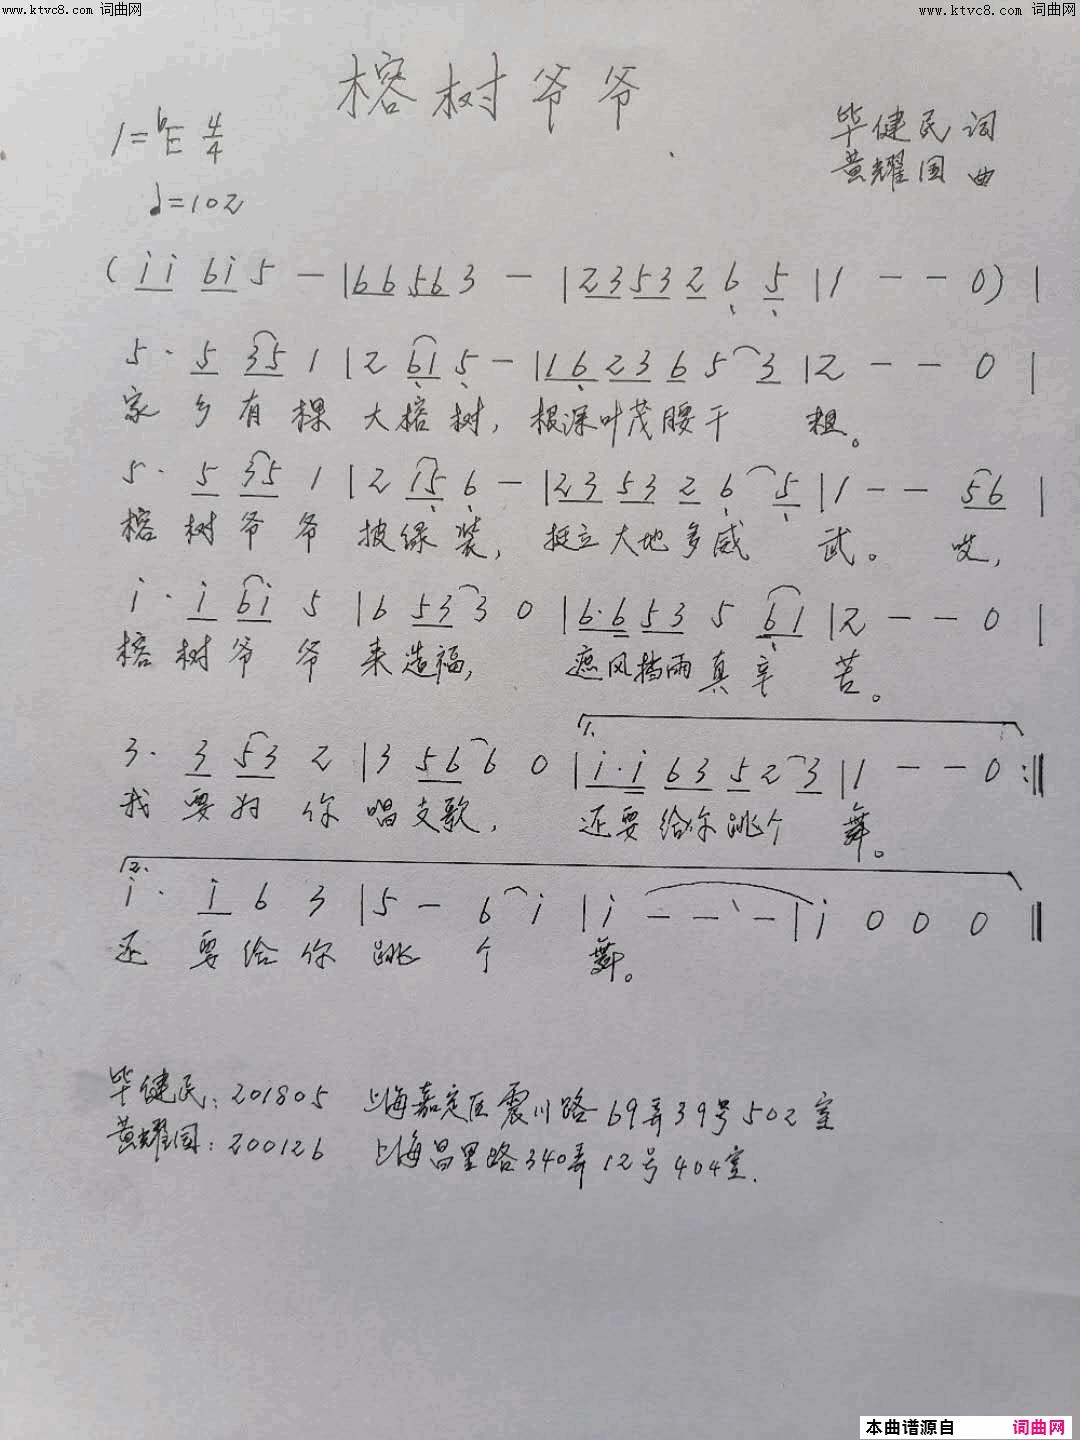 www.ktvc8.com 词曲网 www.ktvc8.com 词曲网
榕树爷爷
1=♭E 4/4 毕健民 词
♩=102 黄耀国 曲
( i i 6 i 5 — | 6 6 5 6 3 — | 2 3 5 3 2 6 5 | 1 — — 0 ) |
5· 5 3 5 1 | 2 6 1 5 — | 1 6 2 3 6 5 3 | 2 — — 0 |
家 乡 有 棵 大 榕 树, 根深叶茂腰干 粗。
5· 5 3 5 1 | 2 1 5 6 — | 2 3 5 3 2 6 5 | 1 — — 5 6 |
榕 树 爷 爷 披 绿 装, 挺立大地多威 武。 哎,
i· i 6 i 5 | 6 5 3 3 0 | 6· 6 5 3 5 6 1 | 2 — — 0 |
榕 树 爷 爷 来 造福, 遮风挡雨真 辛 苦。
1.
3· 3 5 3 2 | 3 5 6 6 0 | i· i 6 3 5 2 3 | 1 — — 0 :‖
我 要为 你 唱支歌, 还要给你跳个 舞。
2.
i· i 6 3 | 5 — 6 i | i — — — | i 0 0 0 ‖
还 要 给 你 跳 个 舞。
毕健民: 201805 上海嘉定区震川路69弄39号502室
黄耀国: 200126 上海昌里路340弄12号404室.
本曲谱源自 词曲网